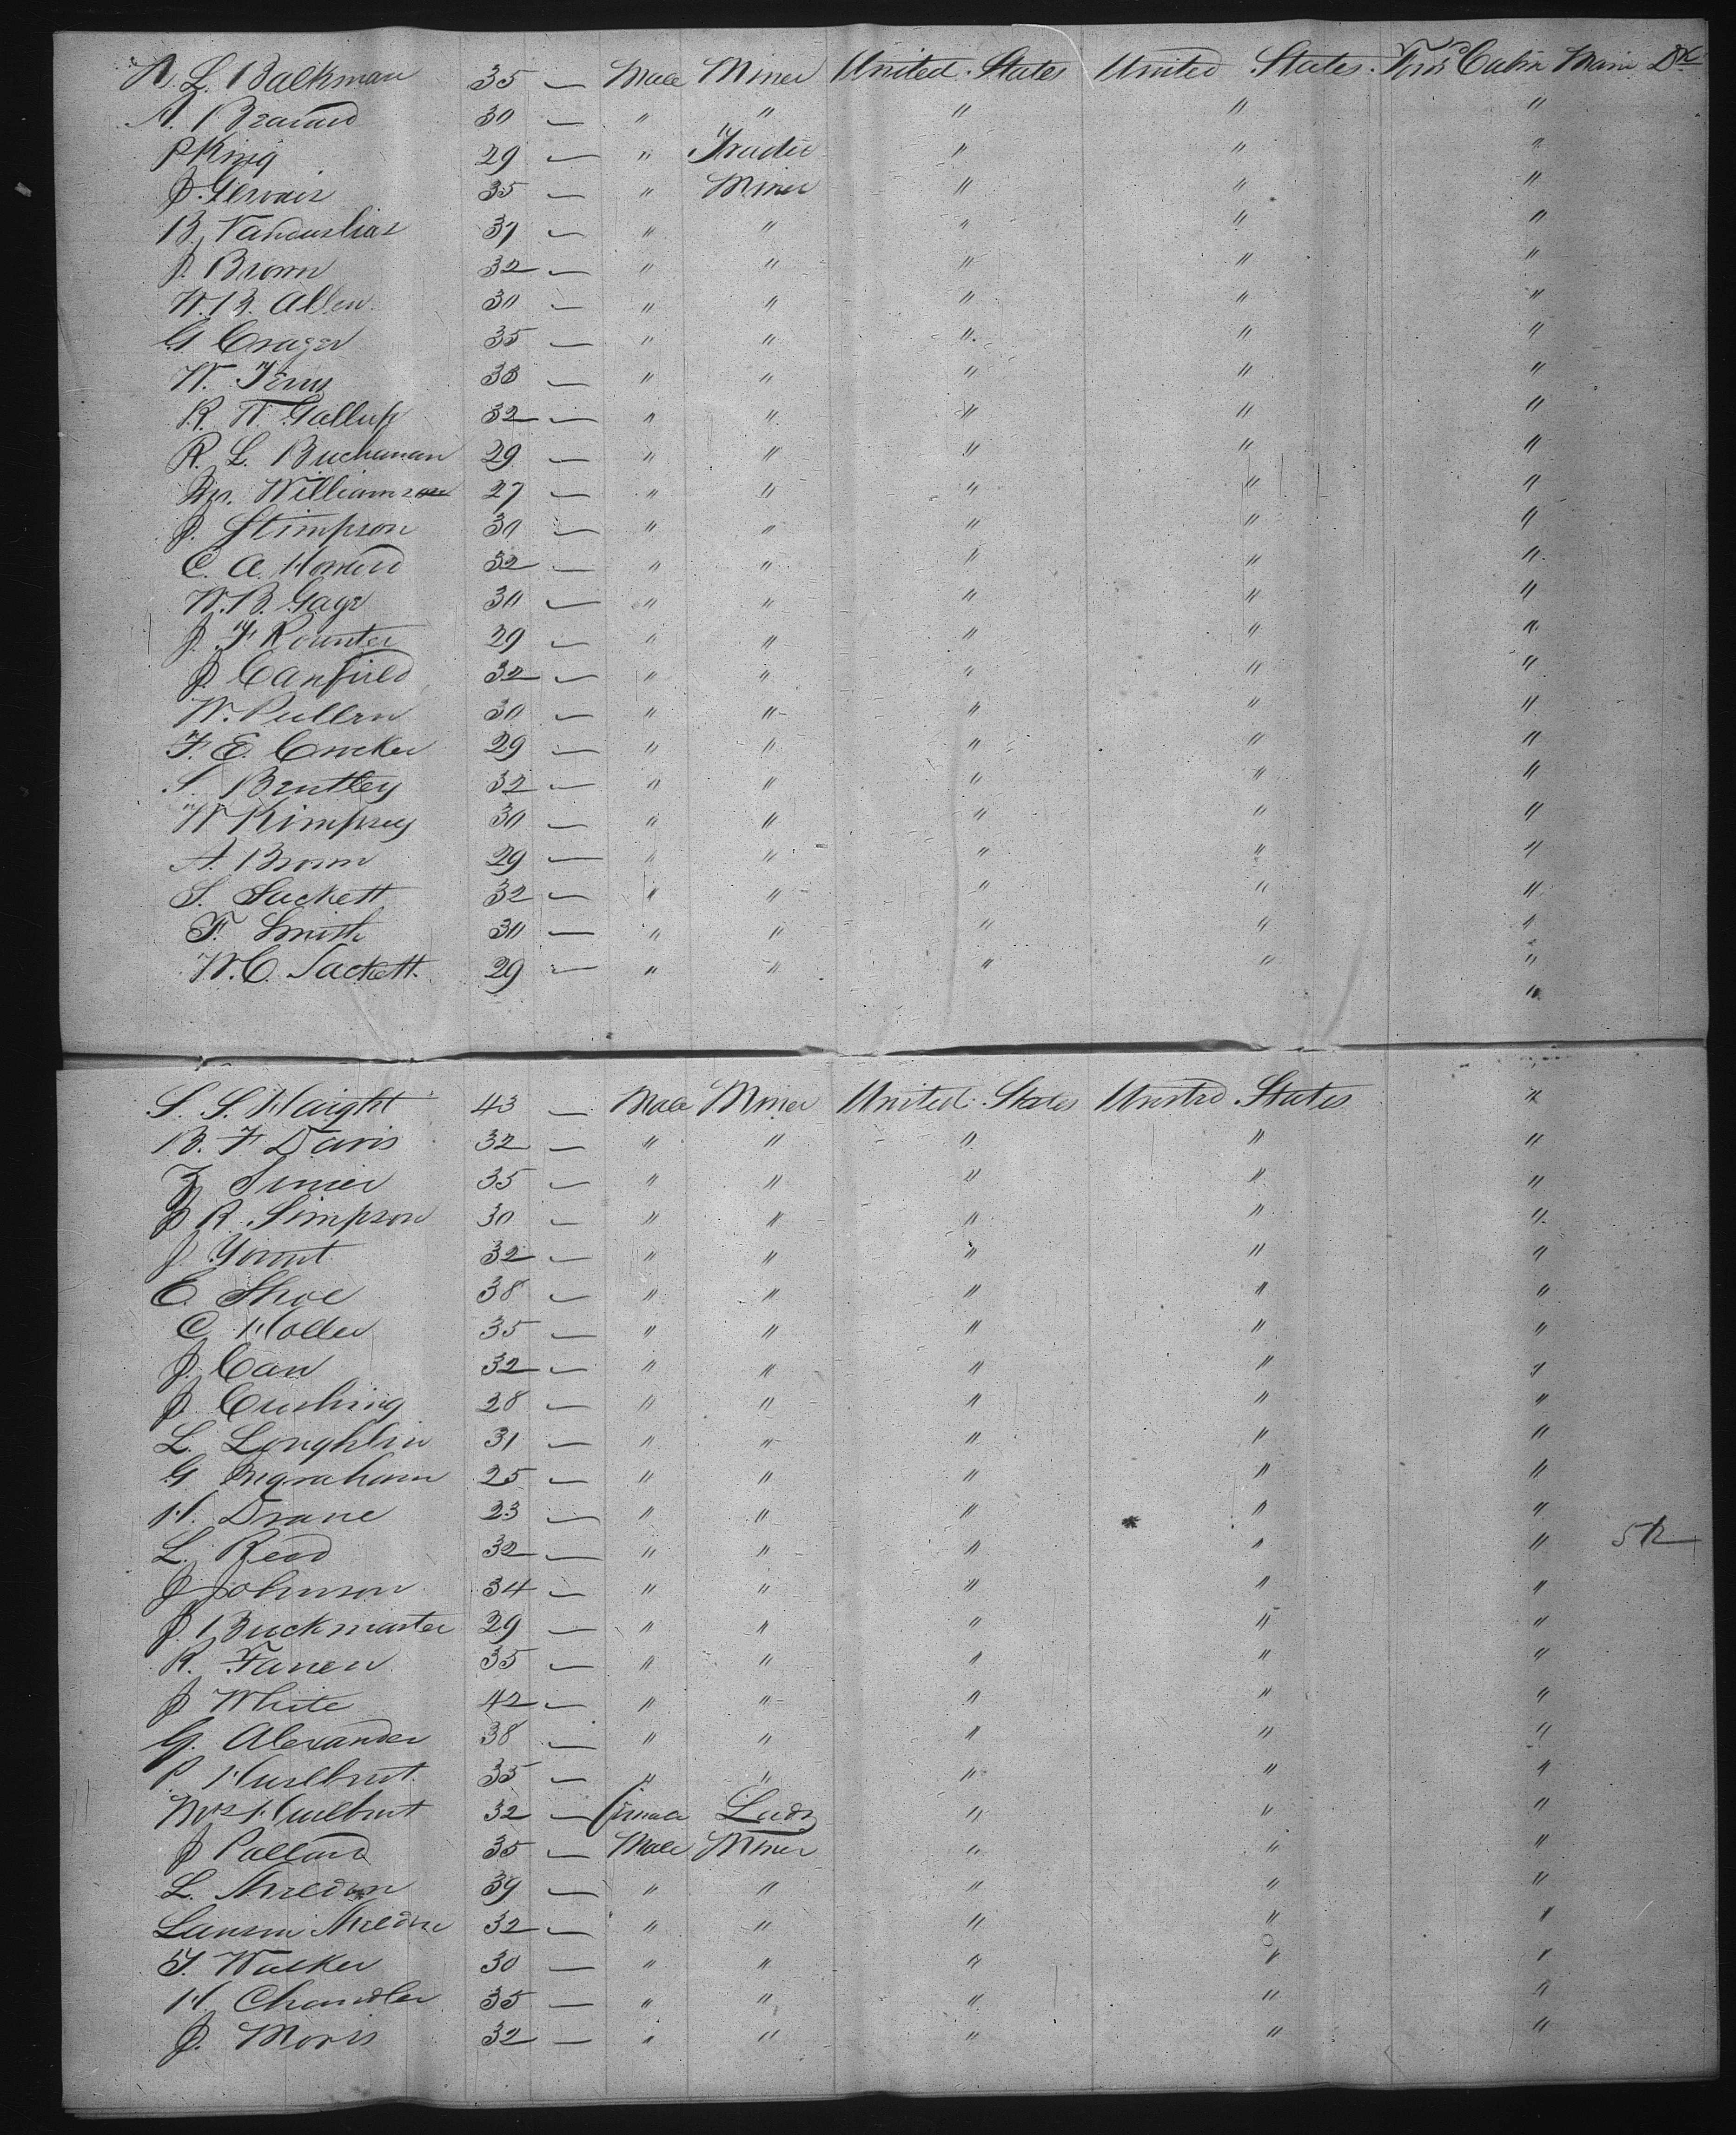 L. Balkman 35 — Male Miner United States United States Cabin Main Dk
A. 30 — " " " " "
P King 29 — " Trader " " "
J. Gervais 35 — " Miner " " "
B. — " " " " "
J. Brown 32 — " " " " "
W. B. Allen 30 — " " " " "
G Crager 35 — " " " " "
W. 33 — " " " " "
R. W. Gallup 32 — " " " " "
R. L. Buchanan 29 — " " " " "
Williamson 27 — " " " " "
J. Stimpson 30 — " " " " "
C. A. Howard 32 — " " " " "
W. B. Gage 30 — " " " " "
J. F. Rounter 29 — " " " " "
J. Canfield 32 — " " " " "
W. Pullen 30 — " " " " "
F. E. Crocker 29 — " " " " "
S. Bentley 32 — " " " " "
W Kimpsey 30 — " " " " "
A. Brown 29 — " " " " "
S. Sackett 32 — " " " " "
F. Smith 30 — " " " " "
W. C. Sackett. 29 — " " " " "
"
S. S. Haight 43 — Male Miner United States United States "
B. F Davis 32 — " " " " "
35 — " " " " "
J R. Simpson 30 — " " " " "
J. Yount 32 — " " " " "
E. Shoe 38 — " " " " "
C. Holler 35 — " " " " "
J. Carr 32 — " " " " "
J. Cushing 28 — " " " " "
L. Loughlin 31 — " " " " "
G. Ingraham 25 — " " " " "
H. Drane 23 — " " " " "
L. Read 32 — " " " " " 52
J Johnson 34 — " " " " "
J. Buckmaster 29 — " " " " "
R. Farren 35 — " " " " "
J White 42 — " " " " "
G. Alexander 38 — " " " " "
P. Hurlbrut 35 — " " " " "
Mrs Hurlbrut 32 — Female Lady " " "
J Pollard 35 — Male Miner " " "
L. 39 — " " " " "
32 — " " " " "
T. Walker 30 — " " " " "
H. Chandler 35 — " " " " "
J. Morris 32 — " " " " "